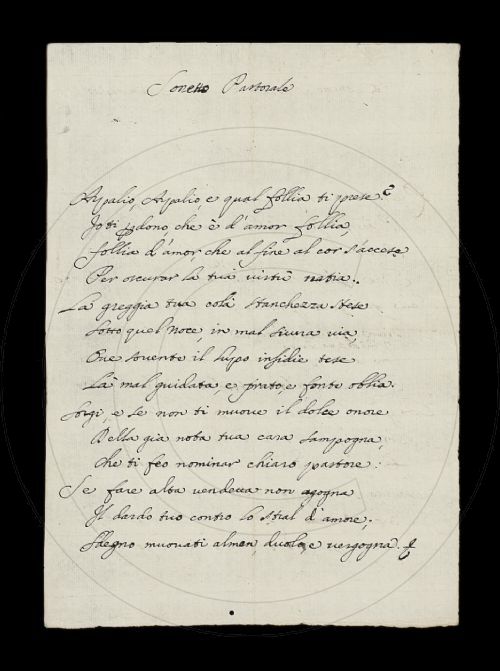 Sonetto Pastorale
Aspalio, Aspalio, e qual follia ti prese?
Io ti perdono, che è d'amor follia
follia d'amor che al fine al cor s'accese
Per oscurar la tua virtù natia.
La greggia tua colà stanchezza stese
Sotto quel noce, in mal sicura via
Oue souente il lupo insidie tese
Là mal guidata, e prato, e fonte obblia.
Sorgi, e se non ti muoue il dolce onore
Della già nota tua cara sampogna,
Che ti feo nominar chiaro pastore:
Se fare alta vendetta non agogna
Il dardo tuo contro lo stral d'amore.
Sdegno muouati almen duolo, e vergogna.